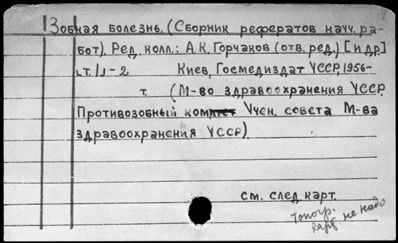 Зобная болезнь. (Сборник рефератов науч. ра-
бот). Ред. колл.: А.К. Горчаков (отв. ред.) [и др.]
т. 1-2 Киев, Госмедиздат УССР, 1956-
т. (М-во здравоохранения УССР.
Противозобный комитет Учен. совета М-ва
здравоохранения УССР).
см. след. карт.
Топогр. карт. не надо